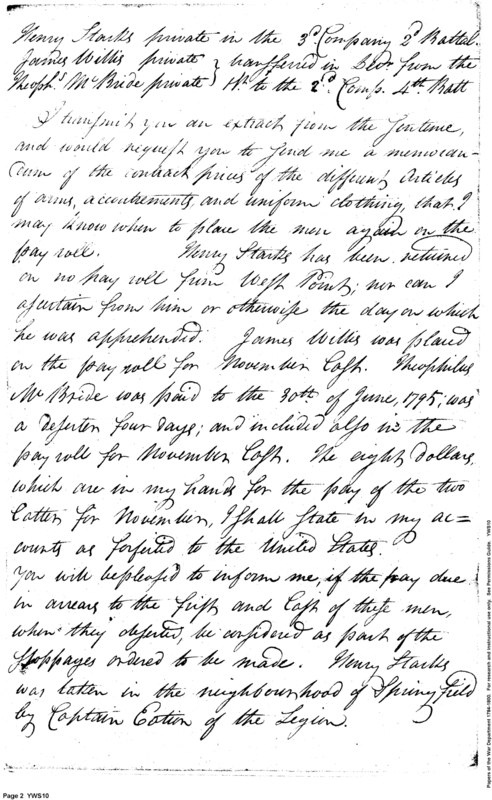 Henry Starks private in the 3d Company 2d Battal.
James Willis private } transferred in Decr. from the
Theophs. McBride private } 4th to the 2d. Comp. 4th Batt
I transmit you an extract from the Sentence,
and would request you to send me a memoran-
dum of the contract prices of the different Articles
of arms, accoutrements, and uniform clothing, that I
may know when to place the men again on the
pay roll. Henry Starks has been returned
on no pay roll from West Point; nor can I
ascertain from him or otherwise the day on which
he was apprehended. James Willis was placed
on the pay roll for November last. Theophilus
McBride was paid to the 30th of June, 1795; was
a deserter four days; and included also in the
pay roll for November last. The eight dollars,
which are in my hands for the pay of the two
latter for November, I shall state in my ac=
counts as forfeited to the United States.
You will be pleased to inform me, if the pay due
in arrears to the first and last of these men,
when they deserted, be considered as part of the
stoppages ordered to be made. Henry Starks
was taken in the neighbourhood of Springfield
by Captain Eaton of the Legion.
Page 2 YWS10
Papers of the War Department 1784-1800. For research and instructional use only. See Permissions Guide. YWS10